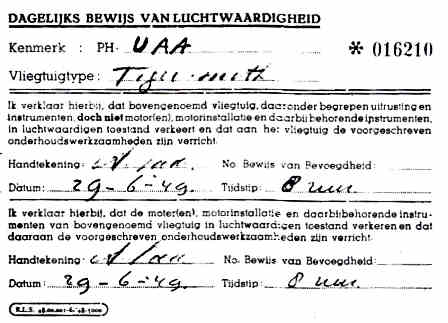 DAGELIJKS BEWIJS VAN LUCHTWAARDIGHEID
Kenmerk : PH- UAA * 016210
Vliegtuigtype:
Ik verklaar hierbij, dat bovengenoemd vliegtuig, daaronder begrepen uitrusting en
instrumenten, doch niet motor(en), motorinstallatie en daarbij behorende instrumenten,
in luchtwaardigen toestand verkeert en dat aan het vliegtuig de voorgeschreven
onderhoudswerkzaamheden zijn verricht.
Handtekening: No. Bewijs van Bevoegdheid:
Datum: 29-6-49. Tijdstip: 8 uur.
Ik verklaar hierbij, dat de motor(en), motorinstallatie en daarbij behorende instru-
menten van bovengenoemd vliegtuig in luchtwaardigen toestand verkeren en dat
daaraan de voorgeschreven onderhoudswerkzaamheden zijn verricht.
Handtekening: No. Bewijs van Bevoegdheid:
Datum: 29-6-49. Tijdstip: 8 uur.
R.L.S.